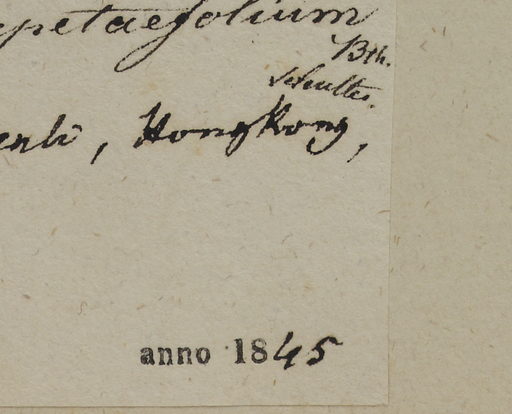 petaefolium
Bth.
Schultes.
, HongKong,
anno 1845